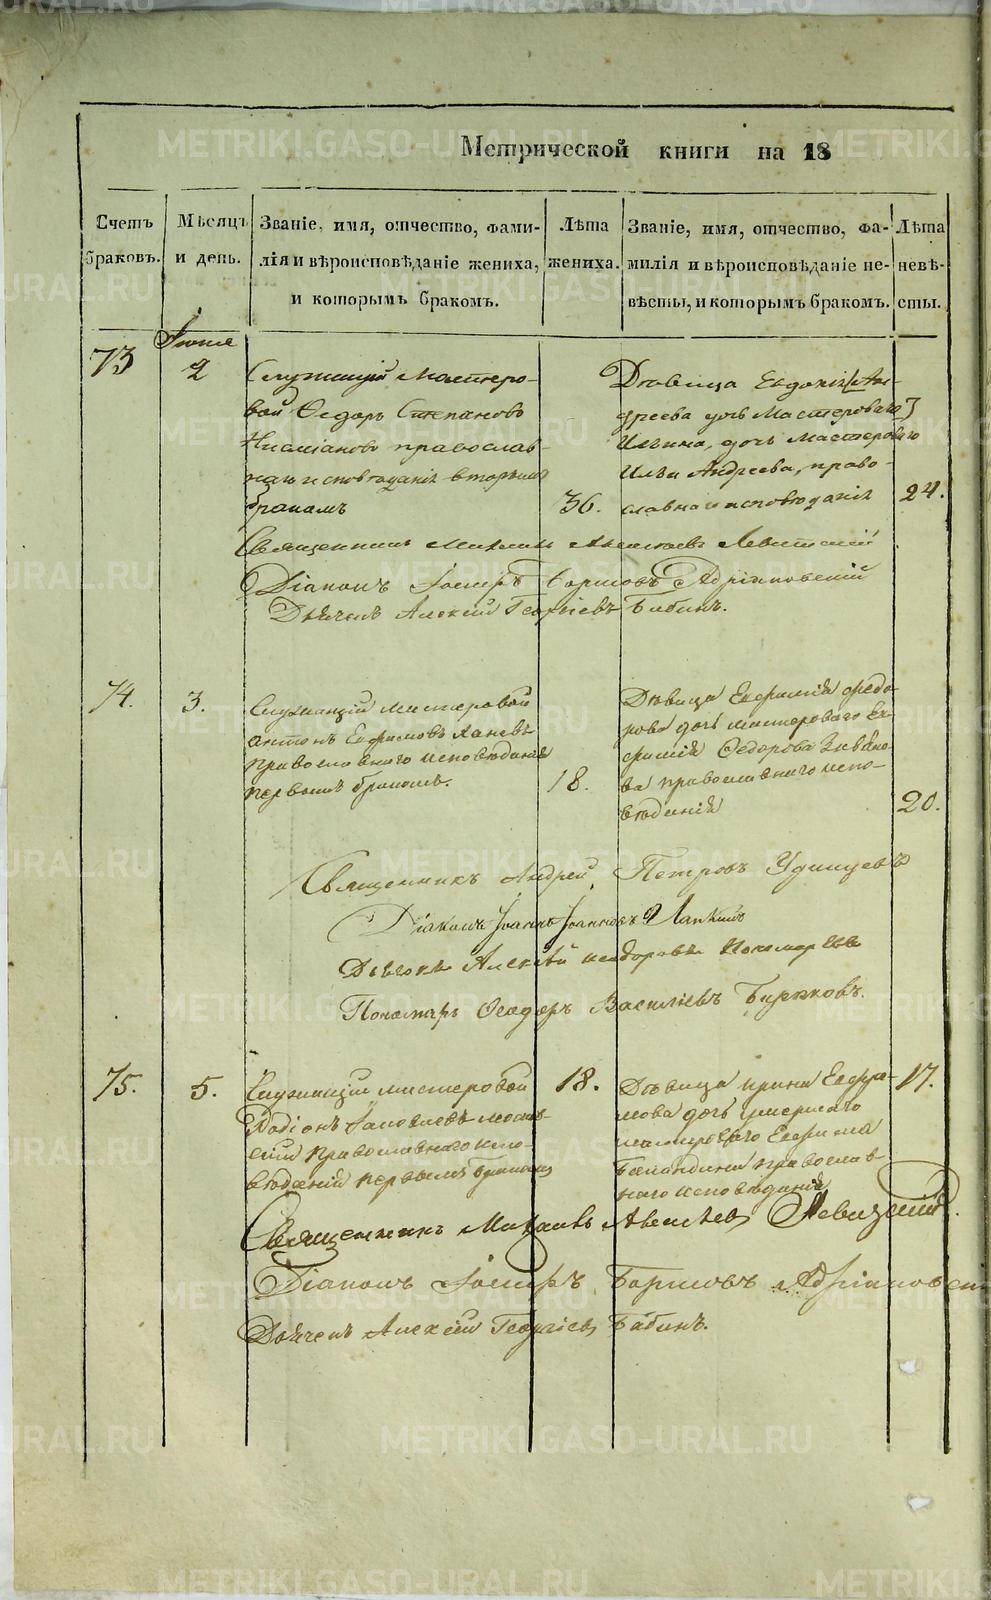 Метрической книги на 18
Счетъ браковъ.
Мѣсяцъ и день.
Званіе, имя, отчество, фами-
лія и вѣроисповѣданіе жениха,
и которымъ бракомъ.
Лѣта
жениха.
Званіе, имя, отчество, фа-
милія и вѣроисповѣданіе не-
вѣсты, и которымъ бракомъ.
Лѣта
невѣ-
сты.
73
Іюня
2
Служащій Мастеро-
вой Ѳедоръ Степановъ
православ-
наго исповѣданія вторымъ
бракомъ
36.
Дѣвица Евдокія [Ан-
дреева дочь Мастероваго]
Ильина, дочь Мастероваго
Ильи Андреева, право-
славнаго исповѣданія
24.
Священникъ Михаилъ Алексѣевъ Левитскій
Діаконъ Іосифъ Борисовъ Адріановскій
Дьячекъ Алексій Георгіевъ Бабинъ.
74.
3.
Служащій мастеровой
Антонъ Ефимовъ Ханевъ
православнаго исповѣданія
первымъ бракомъ.
18.
Дѣвица Евфимія Федо-
рова дочь мастероваго
Федорова
ва православнаго испо-
вѣданія
20.
Священникъ Андрей Петровъ Удинцевъ
Діаконъ Іоаннъ Іоанновъ Лапкинъ
Дьячокъ Алексѣй Пономаревъ
Пономарь Ѳеодоръ Василіевъ Бирюковъ.
75.
5.
Служащій мастеровой
Родіонъ Іаковлевъ
православнаго испо-
вѣданія первымъ бракомъ
18.
Дѣвица Ирина Ефи-
мова дочь умершаго
мастероваго Ефима
Баландина православ-
наго исповѣданія
17.
Священникъ Михаилъ Алексѣевъ Левицкій.
Діаконъ Іосифъ Борисовъ Адріановскій
Дьячекъ Алексій Георгіевъ Бабинъ.
METRIKI.GASO-URAL.RU